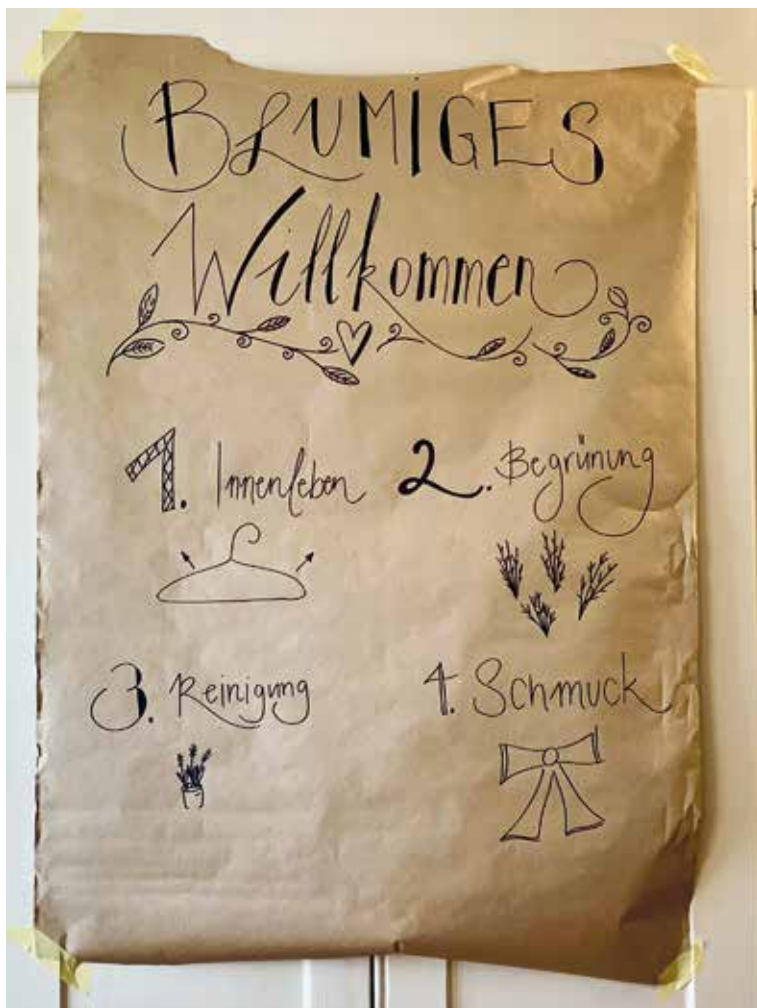 BLUMIGES
Willkommen
1. Innenleben
2. Begrünung
3. Reinigung
4. Schmuck